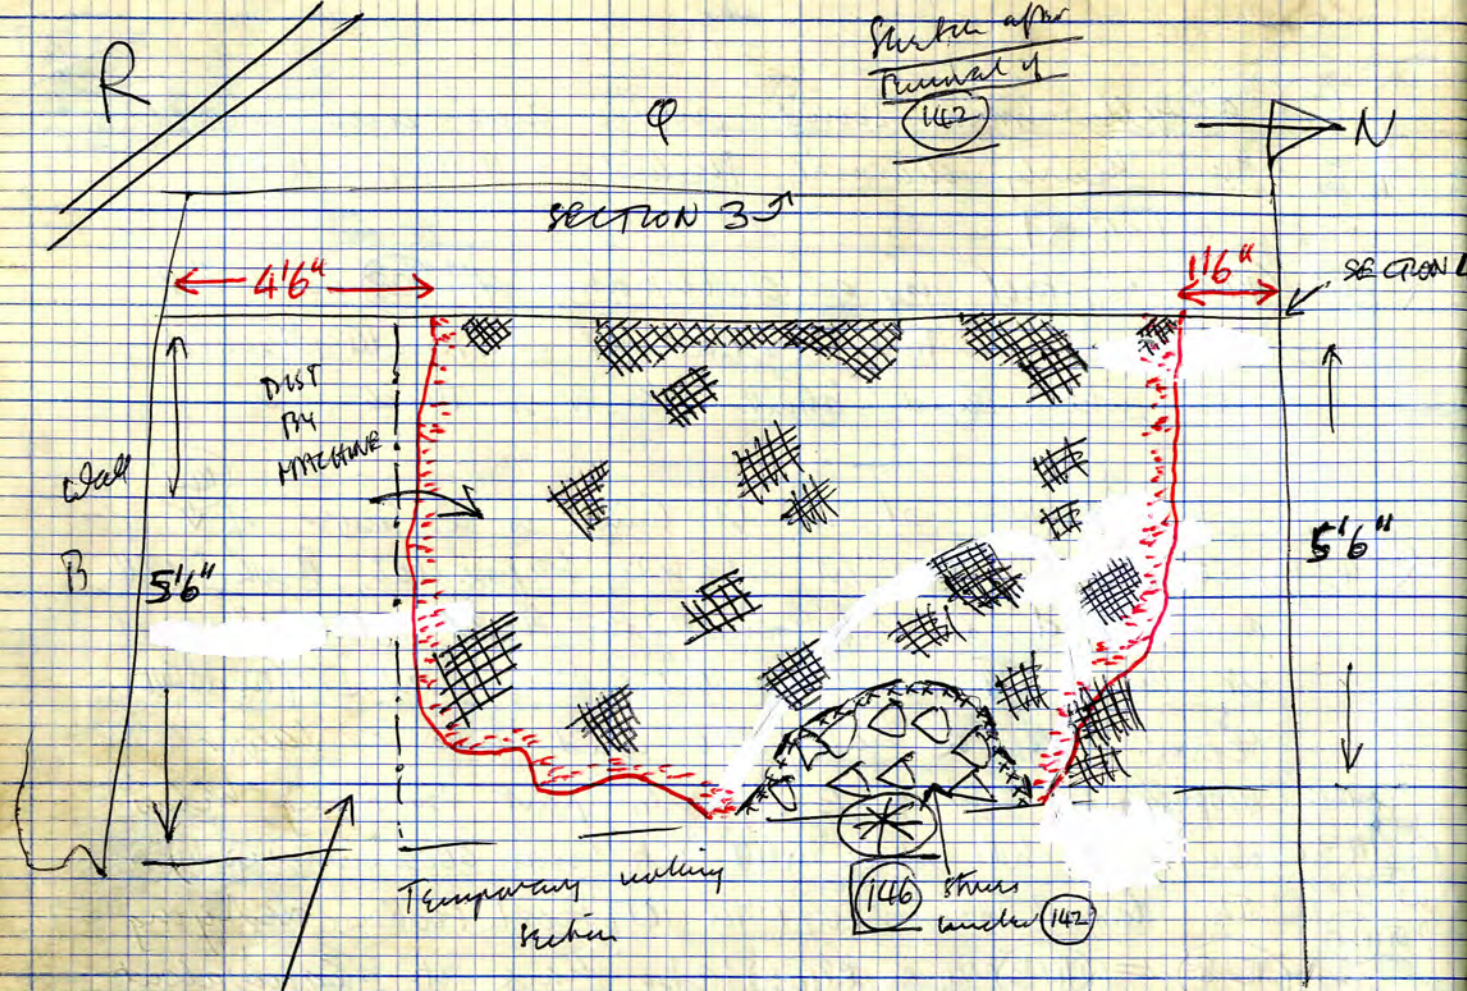 Sketch after
removal of
142
R
φ
N
SECTION 3
4'6"
1'6"
SECTION
DIST
BY
MACHINE
Wall
B
5'6"
5'6"
Temporary working
section
146
stones
under 142